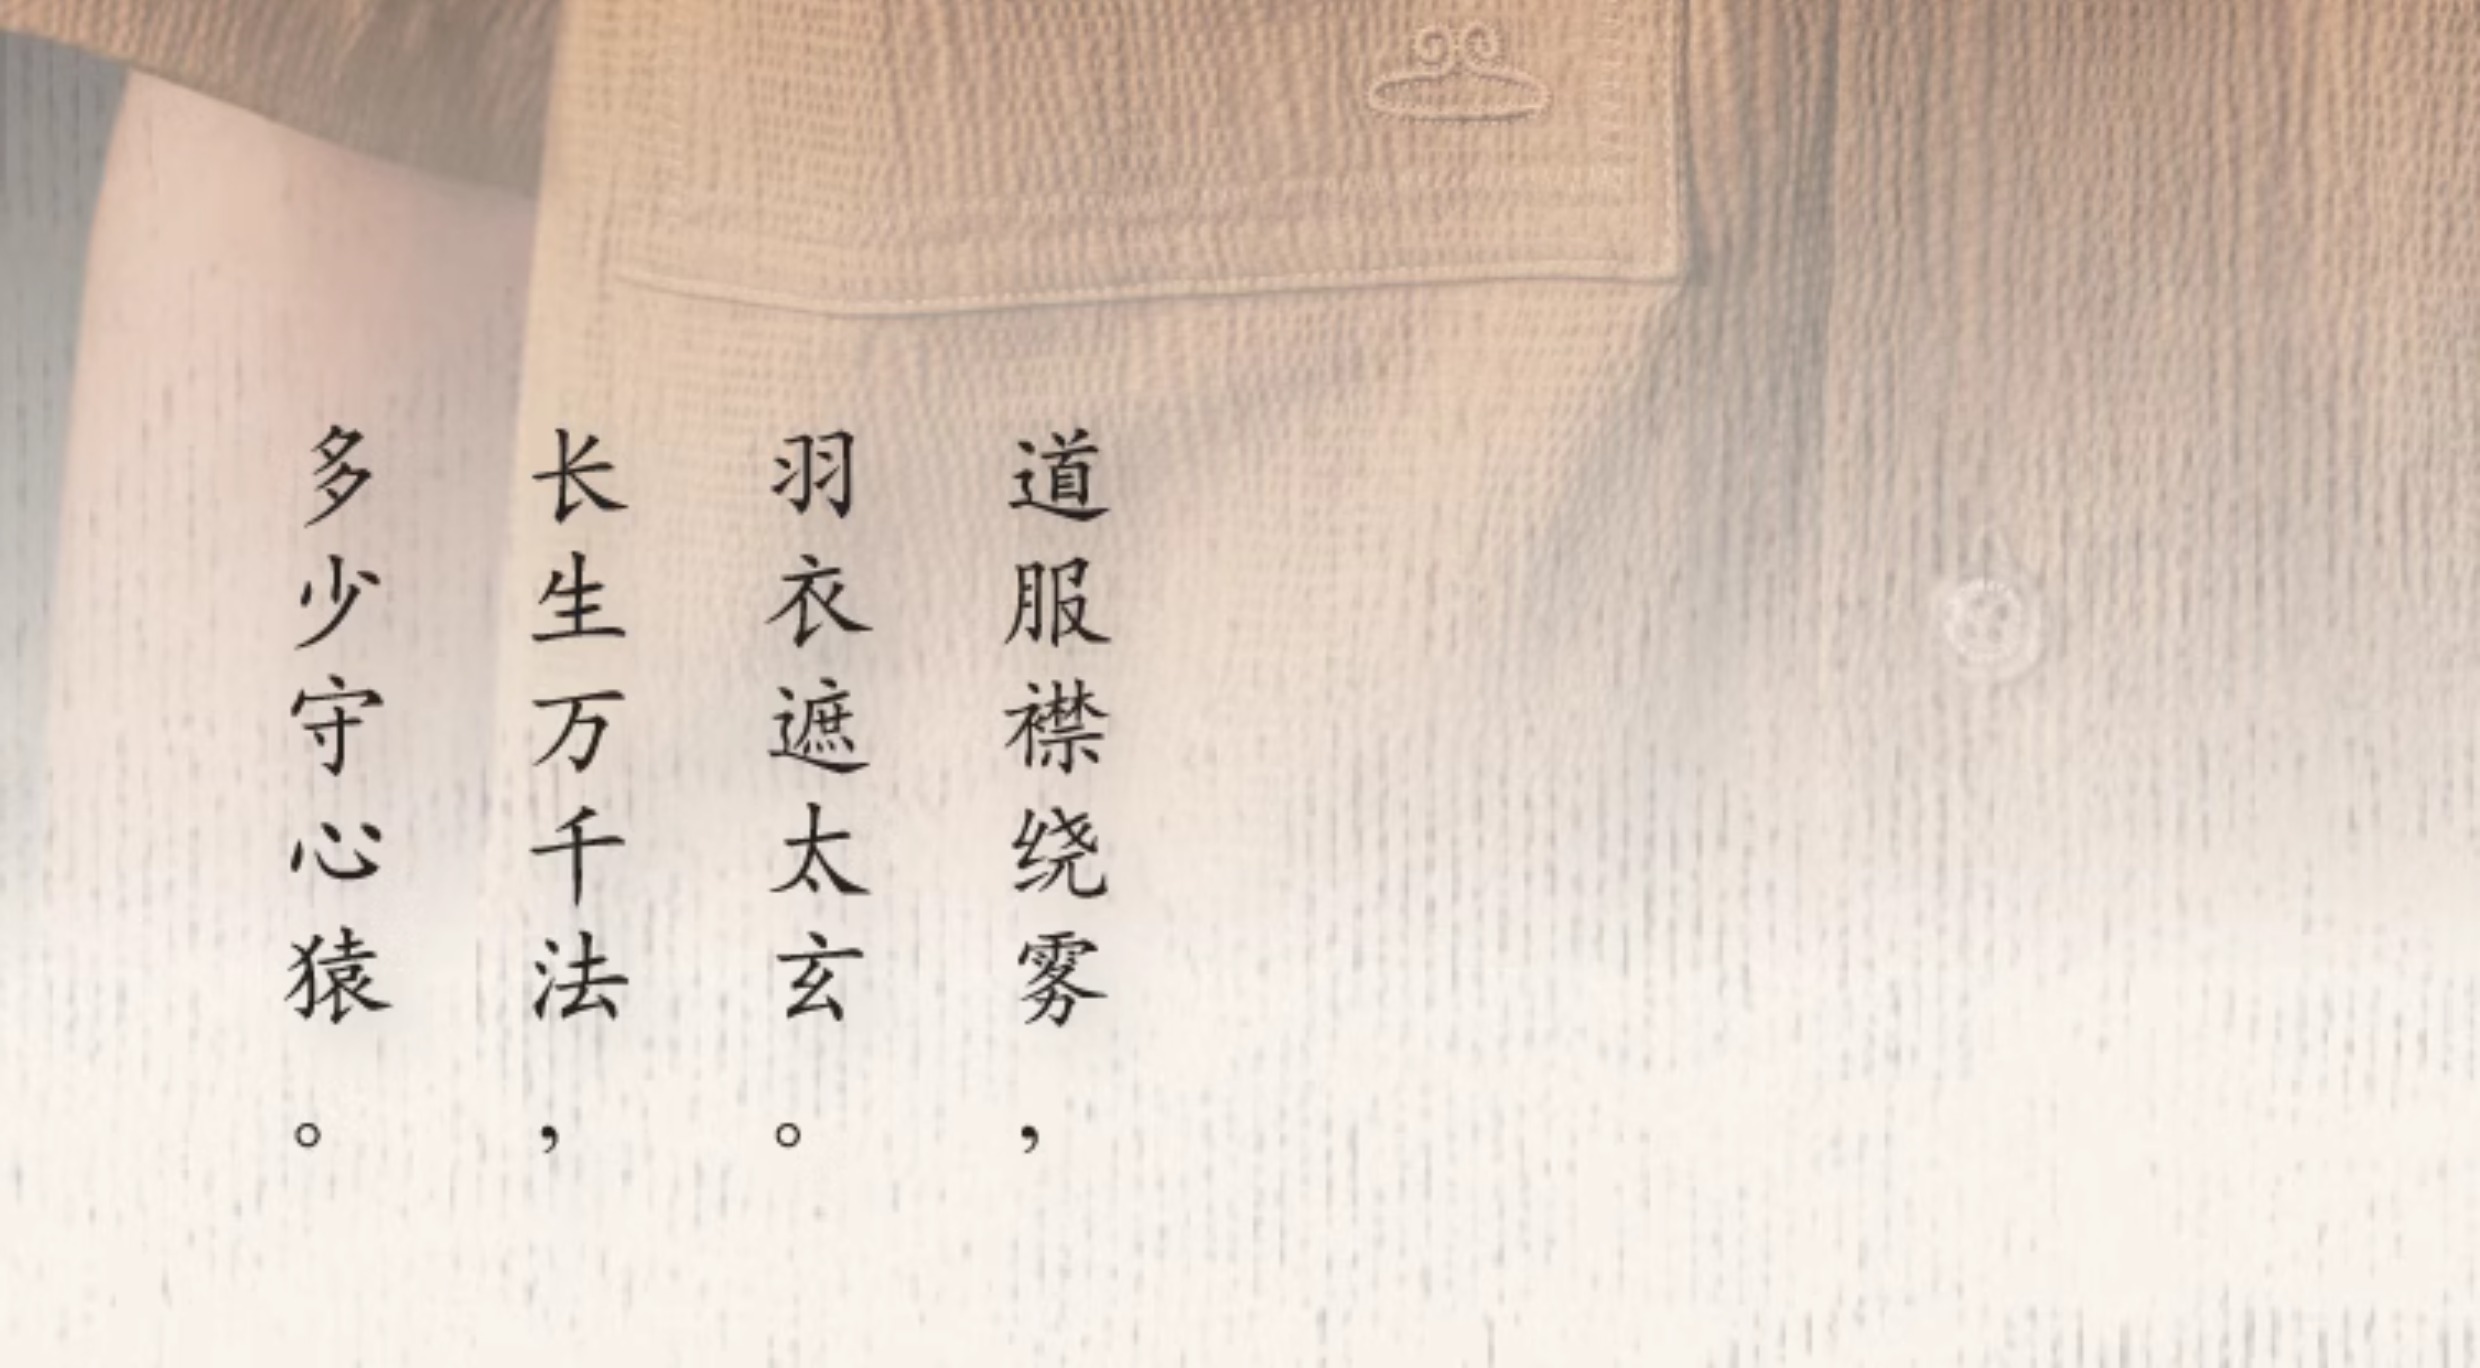 道服襟绕雾，
羽衣遮太玄。
长生万千法，
多少守心猿。